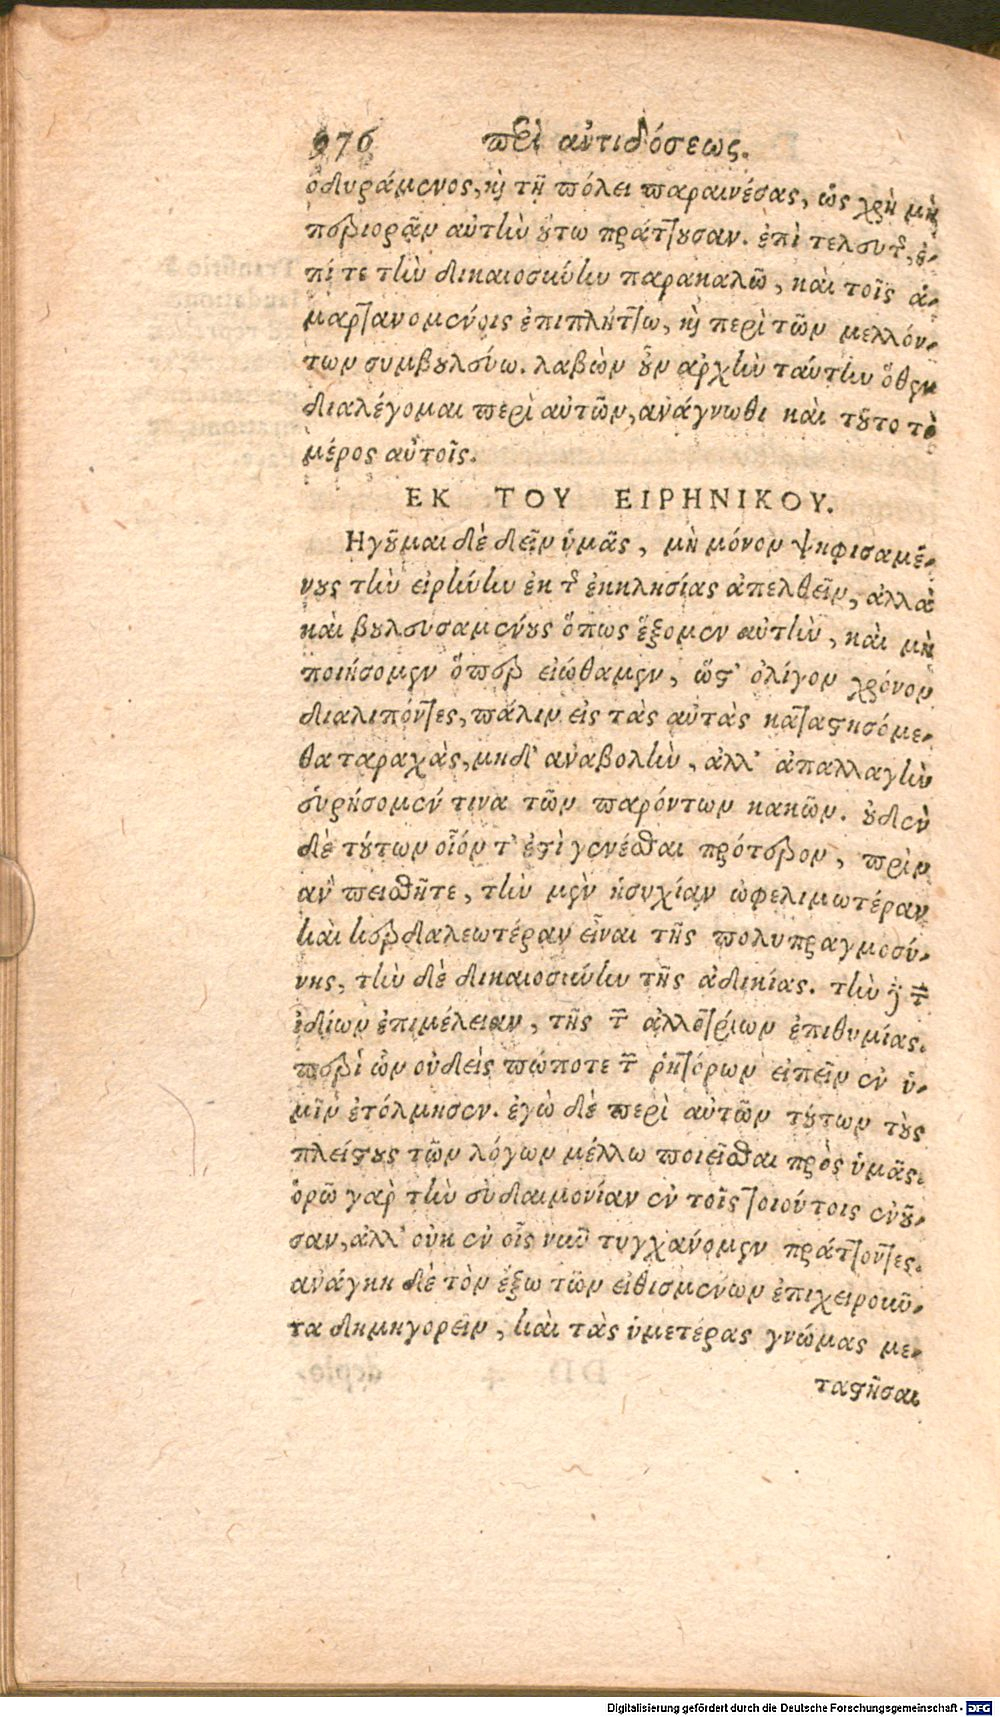 976 περὶ ἀντιδόσεως.
ὀδυράμενος, καὶ τῇ πόλει παραινέσας, ὡς χρὴ μὴ
περιορᾷν αὐτὴν οὕτω πράττουσαν. ἐπὶ τελευτῆς, ἐ-
πί τε τὴν δικαιοσύνην παρακαλῶ, καὶ τοῖς ἁ-
μαρτανομένοις ἐπιπλήττω, καὶ περὶ τῶν μελλόν-
των συμβουλεύω. λαβὼν οὖν ἀρχὴν ταύτην ὅθεν
διαλέγομαι περὶ αὐτῶν, ἀνάγνωθι καὶ τοῦτο τὸ
μέρος αὐτοῖς.
ΕΚ ΤΟΥ ΕΙΡΗΝΙΚΟΥ.
Ηγοῦμαι δὲ δεῖν ὑμᾶς, μὴ μόνον ψηφισαμέ-
νους τὴν εἰρήνην ἐκ τῆς ἐκκλησίας ἀπελθεῖν, ἀλλὰ
καὶ βουλευσαμένους ὅπως ἕξομεν αὐτὴν, καὶ μὴ
ποιήσομεν ὅπερ εἰώθαμεν, ὥστ' ὀλίγον χρόνον
διαλιπόντες, πάλιν εἰς τὰς αὐτὰς καταστησόμε-
θα ταραχὰς, μηδ' ἀναβολὴν, ἀλλ' ἀπαλλαγὴν
εὑρήσομέν τινα τῶν παρόντων κακῶν. οὐδὲν
δὲ τούτων οἷόν τ' ἐστὶ γενέσθαι πρότερον, πρὶν
ἂν πεισθῆτε, τὴν μὲν ἡσυχίαν ὠφελιμωτέραν
καὶ κερδαλεωτέραν εἶναι τῆς πολυπραγμοσύ-
νης, τὴν δὲ δικαιοσύνην τῆς ἀδικίας. τὴν δὲ τῶν
ἰδίων ἐπιμέλειαν, τῆς τῶν ἀλλοτρίων ἐπιθυμίας.
περὶ ὧν οὐδεὶς πώποτε τῶν ῥητόρων εἰπεῖν ἐν ὑ-
μῖν ἐτόλμησεν. ἐγὼ δὲ περὶ αὐτῶν τούτων τοὺς
πλείστους τῶν λόγων μέλλω ποιεῖσθαι πρὸς ὑμᾶς.
ὁρῶ γὰρ τὴν εὐδαιμονίαν ἐν τοῖς τοιούτοις ἐνοῦ-
σαν, ἀλλ' οὐκ ἐν οἷς νῦν τυγχάνομεν πράττοντες.
ἀνάγκη δὲ τὸν ἔξω τῶν εἰθισμένων ἐπιχειροῦν-
τα δημηγορεῖν, καὶ τὰς ὑμετέρας γνώμας με-
ταστῆσαι
Digitalisierung gefördert durch die Deutsche Forschungsgemeinschaft - DFG